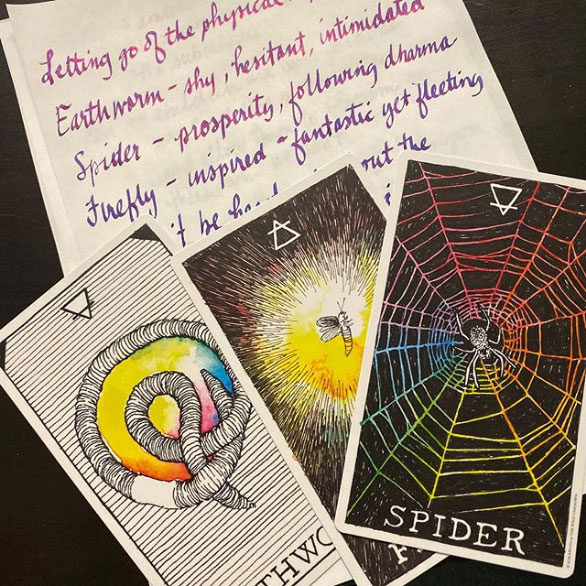 Letting go of the physical
Earthworm - shy, hesitant, intimidated
Spider - prosperity, following dharma
Firefly - inspired - fantastic yet fleeting
be out the
SPIDER
THWO
F